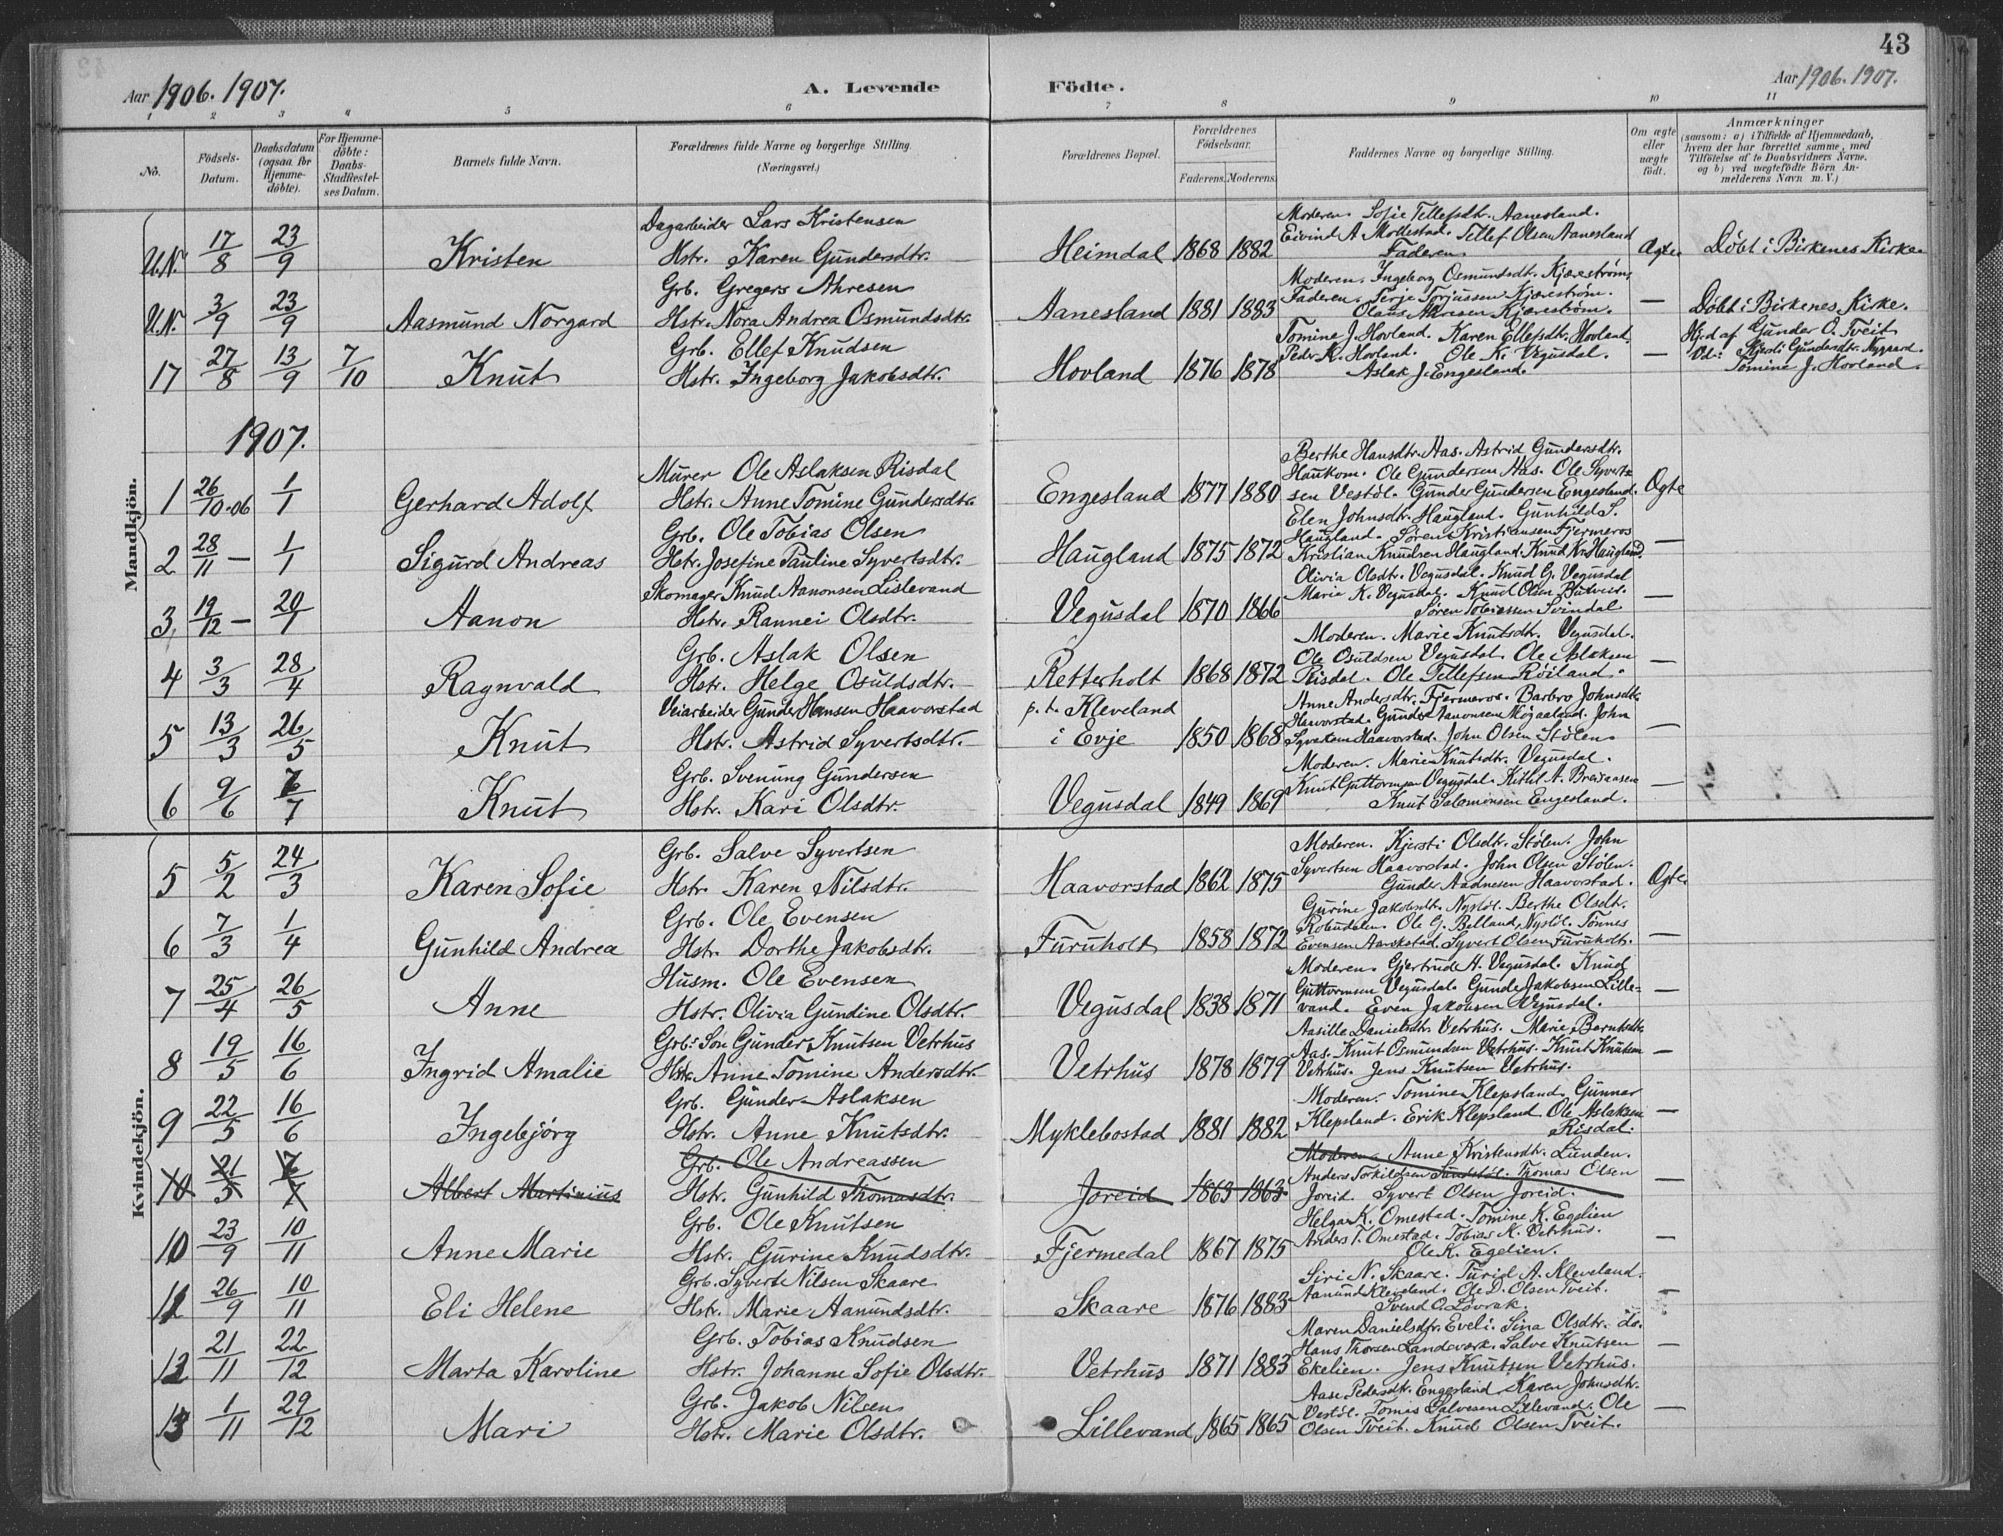 43
Aar 1906. 1907.
A. Levende Födte.
Aar 1906. 1907.
1 2 3 4 5 6 7 8 9 10 11
No.
Födsels-Datum.
Daabsdatum (ogsaa for Hjemmedöbte).
For Hjemmedöbte: Daabs-Stadfæstelses Datum.
Barnets fulde Navn.
Forældrenes fulde Navne og borgerlige Stilling. (Næringsvei.)
Forældrenes Bopæl.
Forældrenes Födselsaar.
Faderens. Moderens.
Faddernes Navne og borgerlige Stilling.
Om ægte eller uægte födt.
Anmærkninger
(saasom: a) i Tilfælde af Hjemmedaab, hvem der har forrettet samme, med Tilföielse af to Daabsvidners Navne, og b) ved uægtefödte Börn Anmelderens Navn m. V.)
Mandkjön.
U.N. 17/8 23/9 Kristen
Dagarbeider Lars Kristensen
Hstr. Karen Gundersdtr.
Heimdal 1868 1882
Moderen. Sofie Tellefsdtr. Aanesland.
Eivind A Mollestad. Tellef Olsen Aanesland
Faderen.
Ægte. Döbt i Birkenes Kirke.
U.N. 3/9 23/9 Aasmund Norgard
Grb. Gregers Ahresen
Hstr. Nora Andrea Osmundsdtr.
Aanesland 1881 1883
Moderen. Ingeborg Osmundsdt. Kjærestrøm,
Faderen. Terje Torjussen Kjærestrøm.
Olaus Ahresen Kjærestrøm.
— Döbt i Birkenes Kirke.
17 27/8 13/9 7/10 Knut
Grb. Ellef Knudsen
Hstr. Ingeborg Jakobsdtr.
Hovland 1876 1878
Tomine J. Hovland. Karen Ellefsdtr. Hovland,
Peder K. Hovland. Ole K. Vegusdal.
Aslak J. Engesland.
— Hj.d af Gunder O. Tveit
Vid: Kjersti Gundersdtr. Nygaard.
Tomine J. Hovland.
1907.
1 26/10-06 1/1 Gerhard Adolf
Murer Ole Aslaksen Risdal
Hstr. Anne Tomine Gundersdtr.
Engesland 1877 1880
Berthe Hansdtr. Aas. Astrid Gundersdtr.
Haukom. Ole Gundersen Aas. Ole Syvert-
sen Vestöl. Gunder Gundersen Engesland.
Ægte
2 28/11 — 1/1 Sigurd Andreas
Grb. Ole Tobias Olsen
Hstr. Josefine Pauline Syvertsdtr.
Haugland 1875 1872
Elen Johnsdtr. Haugland. Gunhild S.
Haugland. Søren Kristiansen Fjermeros
Kristian Knudsen Haugland. Knud Kr. Haugland.
—
3 19/12 — 20/1 Aanon
Skomager Knud Aanonsen Lislevand
Hstr. Rannei Olsdtr.
Vegusdal 1870 1866
Olivia Olsdtr. Vegusdal. Knud G. Vegusdal
Marie K. Vegusdal. Knud Olsen
Søren Tobiassen Svindal
—
4 3/3 28/4 Ragnvald
Grb. Aslak Olsen
Hstr. Helge Osuldsdtr.
Retterholt 1868 1872
Moderen. Marie Knutsdtr. Vegusdal.
Ole Osuldsen Vegusdal. Ole Aslaksen
Risdal. Ole Tellefsen Röiland.
—
5 13/3 26/5 Knut
Veiarbeider Gunder Hansen Haavorstad
Hstr. Astrid Syvertsdtr.
p. t. Kleveland
i Evje 1850 1868
Anne Andersdtr. Fjermeros. Barbro Johnsdtr.
Haavorstad. Gunder Aanonsen. John
Syvertsen Haavorstad. John Olsen Stölen
—
6 9/6 7/7 Knut
Grb. Svenung Gundersen
Hstr. Kari Olsdtr.
Vegusdal 1849 1869
Moderen. Marie Knutsdtr. Vegusdal.
Knut Guttormsen Vegusdal. Kittil A.
Knut Salomonsen Engesland.
—
Kvindekjön.
5 5/2 24/3 Karen Sofie
Grb. Salve Syvertsen
Hstr. Karen Nilsdtr.
Haavorstad 1862 1875
Moderen. Kjersti Olsdtr. Stølen. John
Syvertsen Haavorstad. John Olsen Stölen.
Gunder Aadnesen Haavorstad.
Ægte.
6 7/3 1/4 Gunhild Andrea
Grb. Ole Evensen
Hstr. Dorthe Jakobsdtr.
Furuholt 1858 1872
Gurine Jakobsdt. Nystöl. Berthe Olsdtr.
Robudalen. Ole G. Belland, Nystöl. Tönnes
Evensen Aarikstad. Syvert Olsen Furuholt.
—
7 25/4 26/5 Anne
Husm. Ole Evensen
Hstr. Olivia Gundine Olsdtr.
Vegusdal 1838 1871
Moderen. Gjertrude H. Vegusdal. Knud
Guttormsen Vegusdal. Gunde Jakobsen Lille-
vand. Even Jakobsen Vegusdal.
—
8 19/5 16/6 Ingrid Amalie
Grb: Sön Gunder Knutsen Vetrhus
Hstr. Anne Tomine Andersdtr.
Vetrhus 1878 1879
Aasille Danielsdtr. Vetrhus. Marie Berntsdtr.
Aas. Knut Osmundsen Vetrhus. Knut Knutsen
Vetrhus. Jens Knutsen Vetrhus.
—
9 22/5 16/6 Ingebjörg
Grb. Gunder Aslaksen
Hstr. Anne Knutsdtr.
Myklebostad 1881 1882
Moderen. Tomine Klepsland. Gunnar
Klepsland. Erik Klepsland Ole Aslaksen
Risdal.
—
10 21/5 7/7 Albert Martinius
Grb. Ole Andreassen
Hstr. Gunhild Thomasdtr.
Joreid 1863 1863
Moderen Anne Kristensdtr. Lunden.
Anders Torkildsen Sundstöl. Thomas Olsen
Joreid. Syvert Olsen Joreid.
10 23/9 10/11 Anne Marie
Grb. Ole Knutsen
Hstr. Gurine Knudsdtr.
Fjermedal 1867 1875
Helga K. Omestad. Tomine K. Egelien
Anders T. Omestad. Tobias K. Vetrhus.
Ole K. Egelien.
—
11 26/9 10/11 Eli Helene
Grb. Syvert Nilsen Skaare
Hstr. Marie Aanundsdtr.
Skaare 1876 1883
Siri N. Skaare. Turid A. Kleveland.
Aanund Kleveland. Ole D. Olsen Tveit.
Svend O. Lövrak.
—
12 21/11 22/12 Marta Karoline
Grb. Tobias Knudsen
Hstr. Johanne Sofie Olsdtr.
Vetrhus 1871 1883
Maren Danielsdtr. Eveli. Sina Olsdtr. do.
Hans Thorsen Landeverk. Salve Knutsen
Ekelien. Jens Knutsen Vetrhus.
—
13 1/11 29/12 Mari
Grb. Jakob Nilsen
Hstr. Marie Olsdtr.
Lillevand 1865 1865
Aase Pedersdtr. Engesland Karen Johnsdtr.
Vestöl. Tomis Salvesen Lillevand. Ole
Olsen Tveit. Knud Olsen Tveit.
—